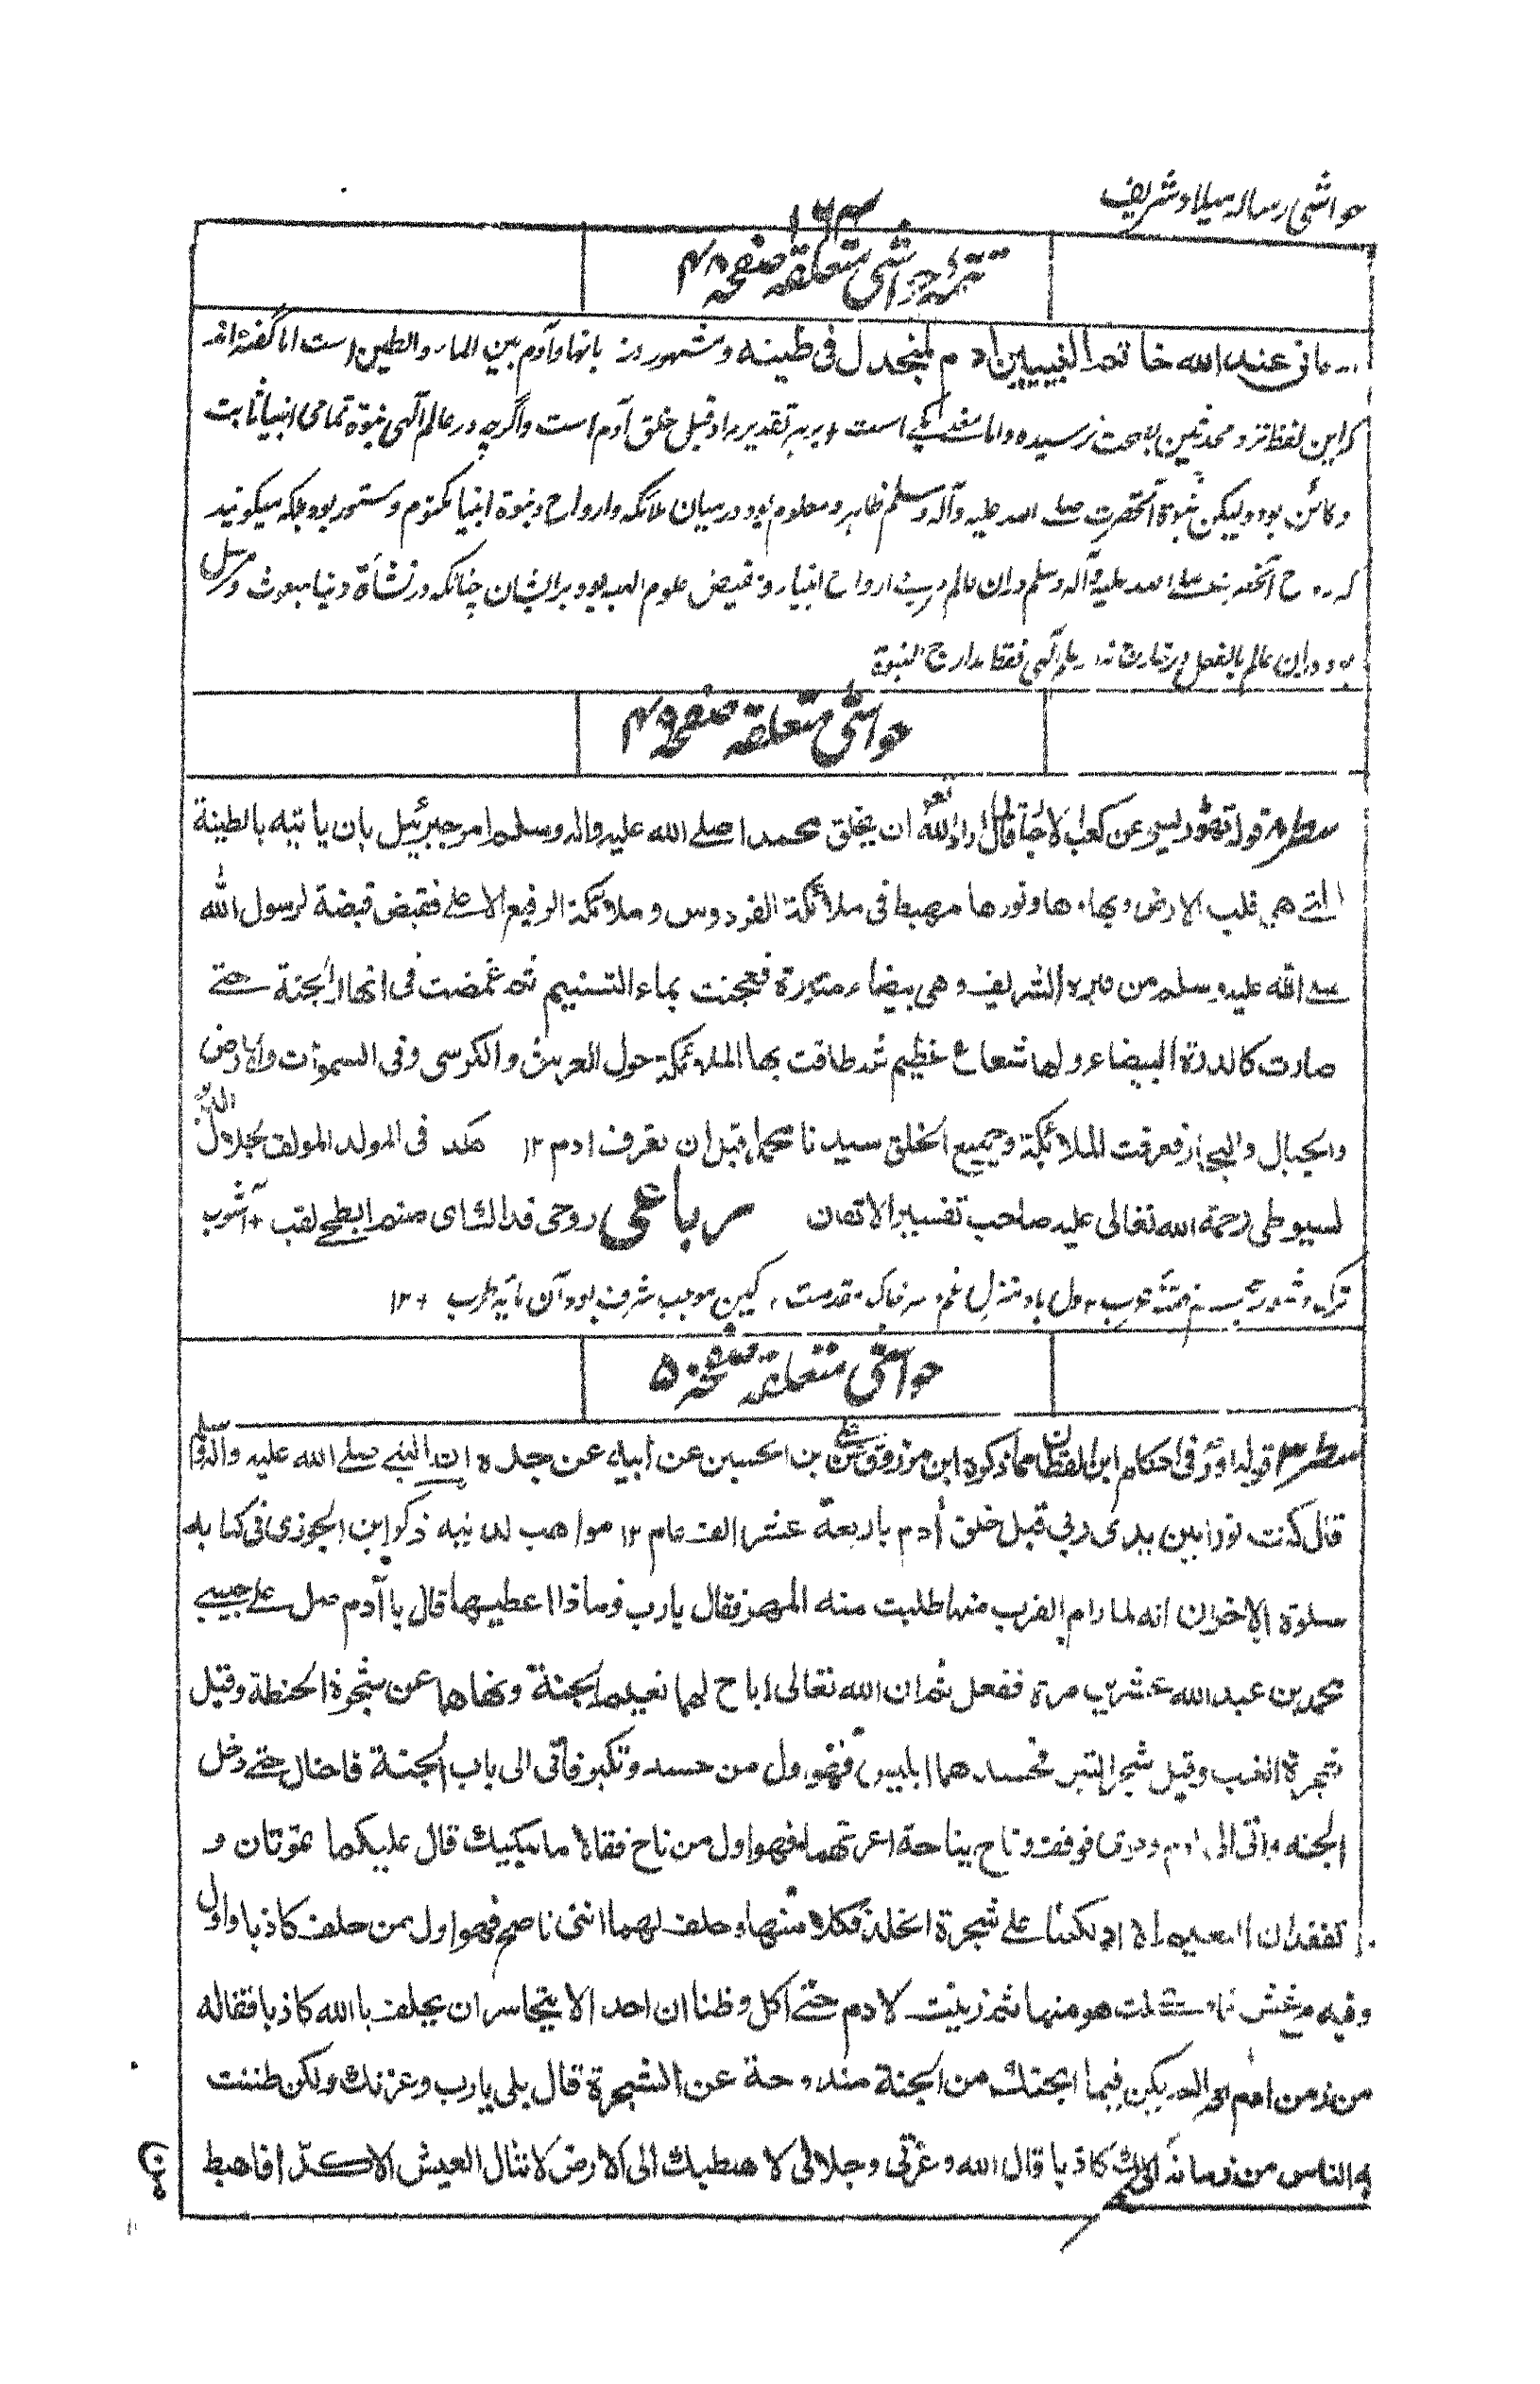 حواشی رساله میلاد شریف
۱۶۴
تتمهٔ حواشی متعلقه صفحه ۴۸
انی عند الله خاتم النبیین وان آدم لمنجدل فی طینه و مشهور در زبانها و آدم بین الماء والطین است اما گفته اند
که این لفظ نزد محدثین بصحت نرسیده واما معنی یکی است و بر هر تقدیر مراد قبل خلق آدم است واگرچه در عالم آلهی نبوة تمامی انبیا ثابت
و کائن بود ولیکن نبوة آنحضرت صلے الله علیه وآله وسلم ظاهر و معلوم بود در میان ملائکه وارواح ونبوة انبیا مکتوم و مستور بود بلکه میگویند
که روح آنحضرت صلے الله علیه وآله وسلم در ان عالم مربی ارواح انبیا و مفیض علوم الهیه بود بر ایشان چنانکه در نشأة دنیا مبعوث و مرسل
بود در ان عالم بالفعل ودر خارج نه در علم آلهی فقط مدارج النبوة
حواشی متعلقه صفحه ۴۹
سطر قوله تقود لیس عن کعب الاحبار قال لما اراد الله تعم ان یخلق محمدا صلے الله علیه واله وسلم امر جبرئیل بان یأتیه بالطینة
التے هی قلب الارض وبهاءها ونورها فهبط فی ملائکة الفردوس وملائکة الرفیع الاعلے فقبض قبضة لرسول الله
صلے الله علیه وسلم من قبره الشریف وهی بیضاء منیرة فعجنت بماء التسنیم ثم غمضت فی انهار الجنة حتے
صارت کالدرة البیضاء ولها شعاع عظیم ثم طافت بها الملائکة حول العرش والکرسی وفی السموات والارض
والجبال والبحار فعرفت الملائکة وجمیع الخلق سیدنا محمدا قبل ان تعرف ادم ۱۲ هکذ فی المولد المولف لجلال الدین
لسیوطی رحمة الله تعالی علیه صاحب تفسیر الاتقان رباعی روحی فداك ای صنم ابطحے لقب + آشوب
ترک و شور عجم فتنهٔ عرب + دل باد منزل غم وسر خاک مقدمت + کین موجب شرف بود آن مایهٔ طرب + ۱۲
حواشی متعلقه صفحه ۵۰
سطر قوله اور فی احکام ابن القطان مما ذکره ابن مرزوق عن علے بن الحسین عن ابیه عن جده ان النبی صلے الله علیه واله وسلم
قال کنت نورا بین یدی ربی قبل خلق آدم باربعة عشر الف عام ۱۲ مواهب لدنیه ذکر ابن الجوزی فی کتابه
سلوة الاخران انه لما رام القرب منها طلبت منه المهر فقال یارب وماذا اعطیها قال یا آدم صل علے حبیبی
محمد بن عبد الله عشرین مرة ففعل ثم ان الله تعالی اباح لهما نعیم الجنة ونهاهما عن شجرة الحنطة وقیل
شجرة العنب وقیل شجر التین فحسدهما ابلیس فهو اول من حسد وتکبر فأتی الی باب الجنة فاحتال حتے دخل
الجنة واتی الی ادم وحواء فوقف وناح نیاحة احزنتهما فهو اول من ناح فقالا ما یبکیك قال علیکما تموتان و
تفقدان النعیم الا ادلکما علے شجرة الخلد فکلا منها وحلف لهما انی ناصح فهو اول من حلف کاذبا واول
وفیه من غش هو منها ثم زینت لادم حتے اکل وظنا ان احدا لا یتجاسر ان یحلف بالله کاذبا فقال له
من یا ادم الم یکن فیما ابحتك من الجنة مندوحة عن الشجرة قال بلی یارب وعزتك ولکن ظننت
الناس من کاذبا قال الله وعزتی وجلالی لا هبطنك الی الارض لا تنال العیش الا کدّا فاهبط